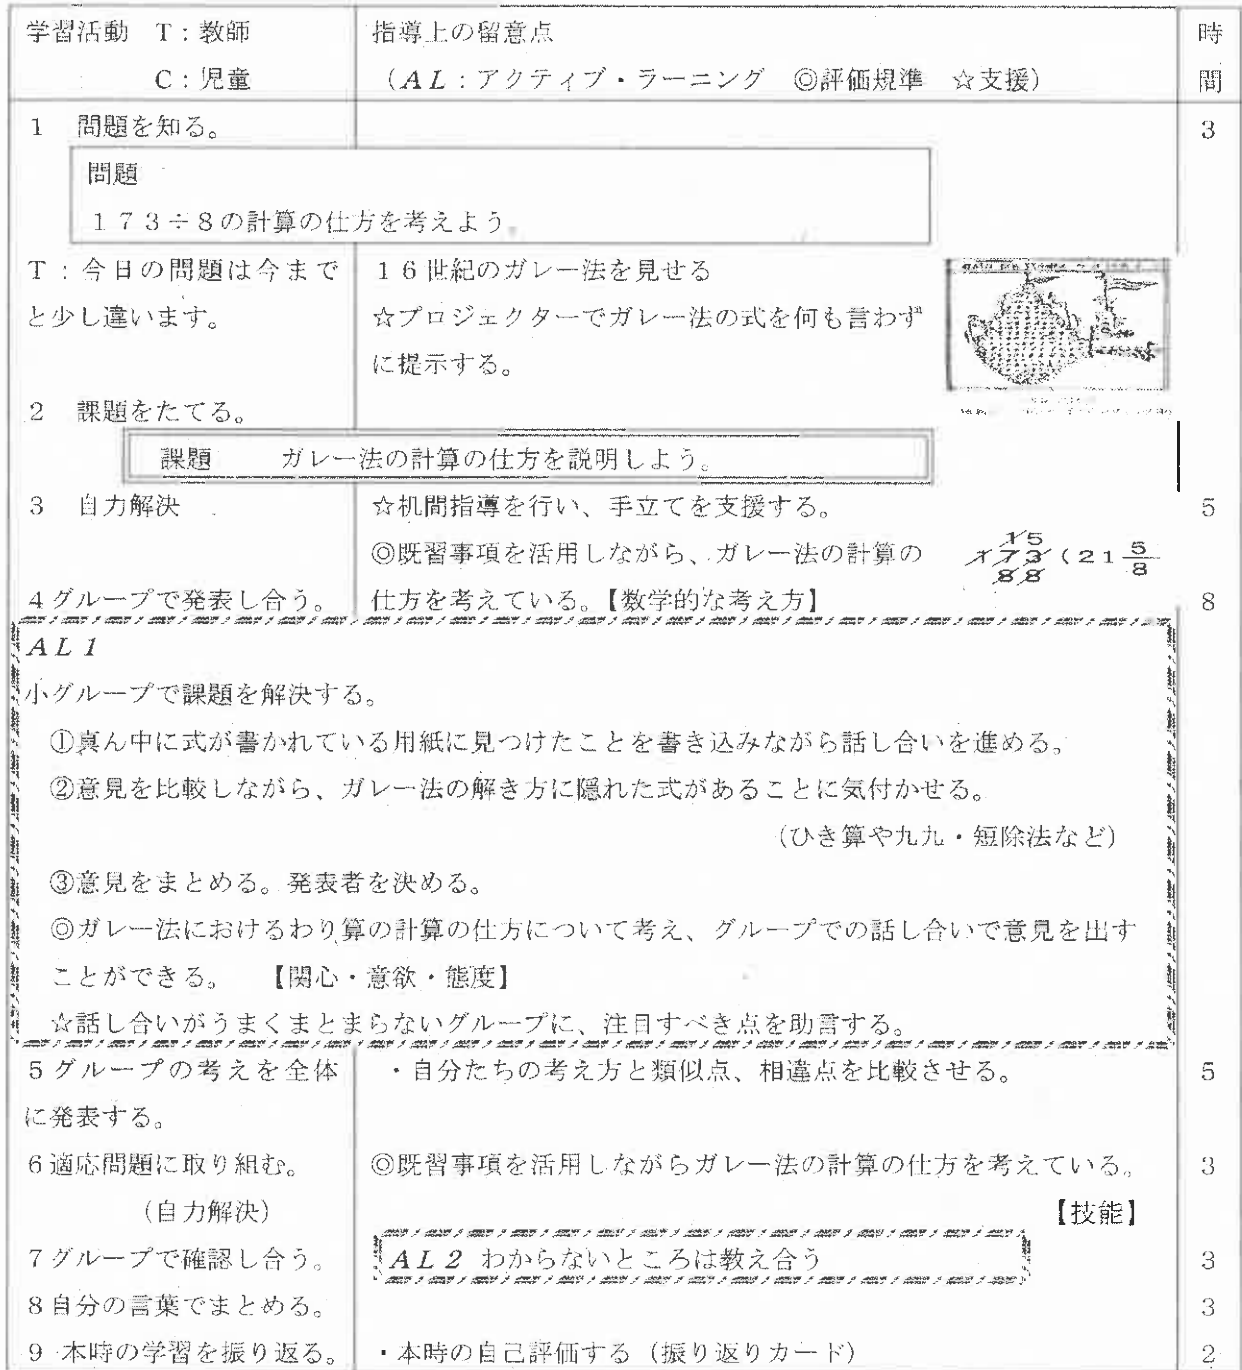 学習活動　T：教師
C：児童
指導上の留意点
（AL：アクティブ・ラーニング　◎評価規準　☆支援）
時
間
1　問題を知る。
3
問題
１７３÷８の計算の仕方を考えよう。
T：今日の問題は今まで
と少し違います。
１６世紀のガレー法を見せる
☆プロジェクターでガレー法の式を何も言わず
に提示する。
2　課題をたてる。
課題　　ガレー法の計算の仕方を説明しよう。
3　自力解決
☆机間指導を行い、手立てを支援する。
5
◎既習事項を活用しながら、ガレー法の計算の
仕方を考えている。【数学的な考え方】
15
173（21 5/8
88
4グループで発表し合う。
8
AL1
小グループで課題を解決する。
①真ん中に式が書かれている用紙に見つけたことを書き込みながら話し合いを進める。
②意見を比較しながら、ガレー法の解き方に隠れた式があることに気付かせる。
（ひき算や九九・短除法など）
③意見をまとめる。発表者を決める。
◎ガレー法におけるわり算の計算の仕方について考え、グループでの話し合いで意見を出す
ことができる。　【関心・意欲・態度】
☆話し合いがうまくまとまらないグループに、注目すべき点を助言する。
5グループの考えを全体
に発表する。
・自分たちの考え方と類似点、相違点を比較させる。
5
6適応問題に取り組む。
（自力解決）
◎既習事項を活用しながらガレー法の計算の仕方を考えている。
【技能】
3
7グループで確認し合う。
AL2 わからないところは教え合う
3
8自分の言葉でまとめる。
3
9 本時の学習を振り返る。
・本時の自己評価する（振り返りカード）
2